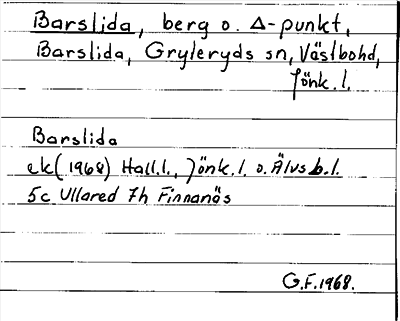 Barslida, berg o. Δ-punkt,
Barslida, Gryleryds sn, Västbohd,
Jönk. l.
Barslida
ek (1968) Hall.l., Jönk.l. o. Älvsb.l.
5c Ullared 7h Finnanäs
G.F. 1968.